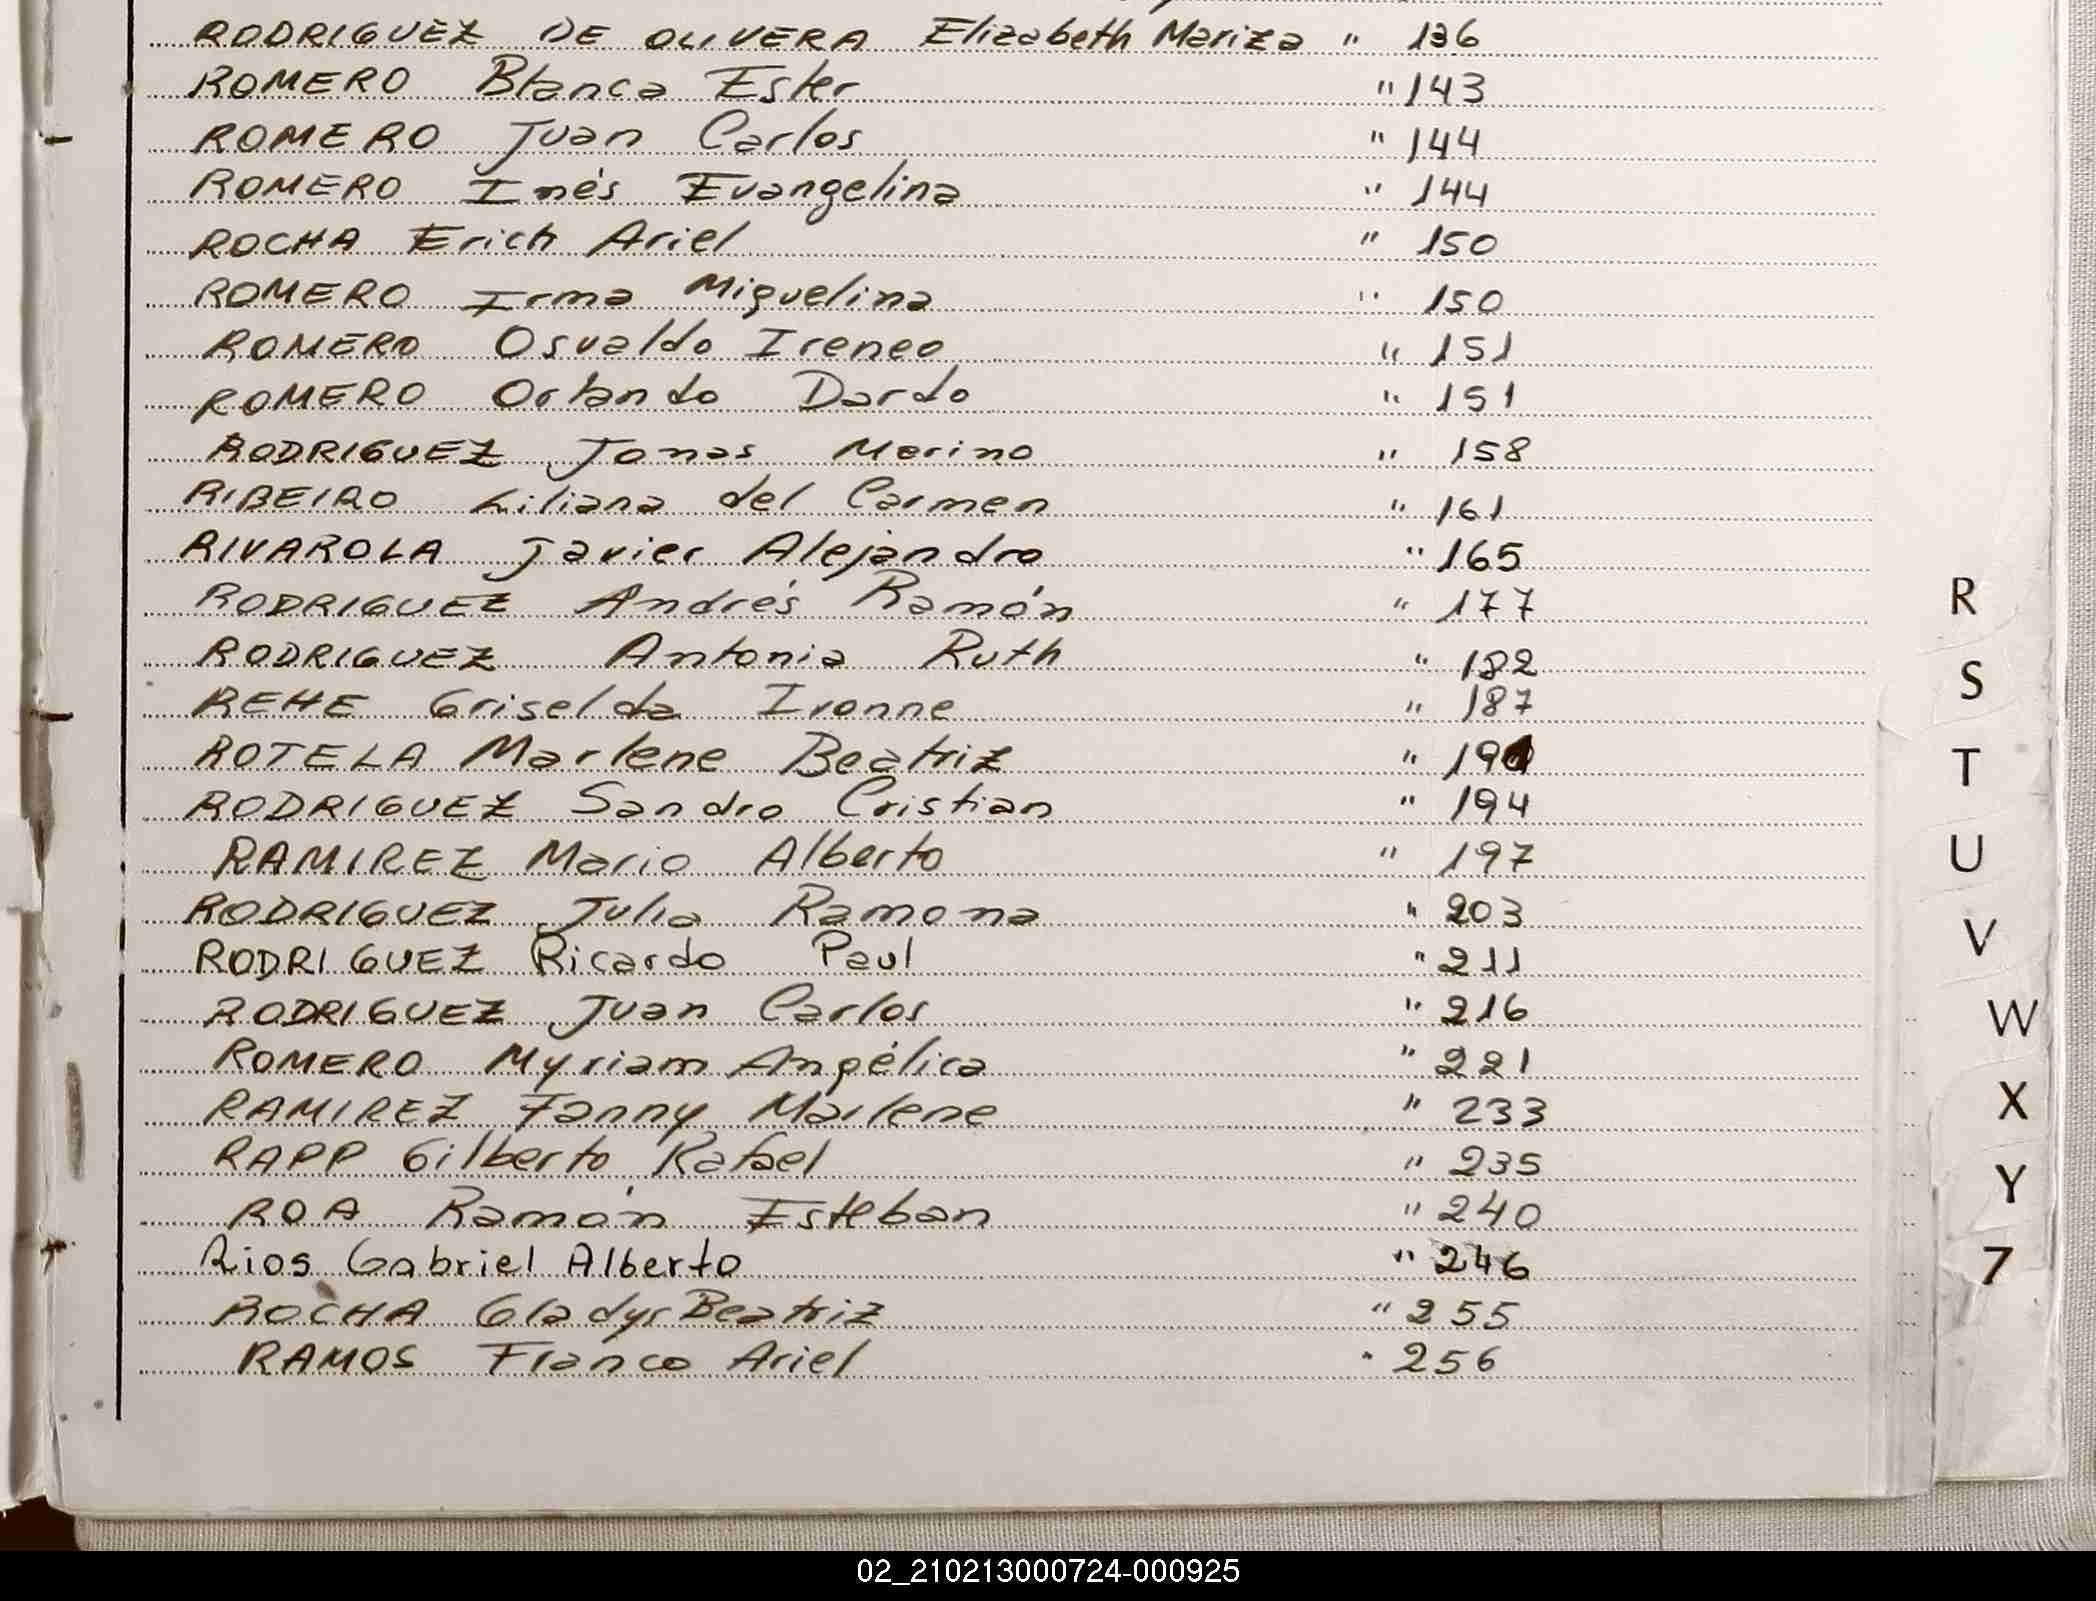 RODRIGUEZ DE OLIVERA Elizabeth Mariza " 136
ROMERO Blanca Ester " 143
ROMERO Juan Carlos " 144
ROMERO Inés Evangelina " 144
ROCHA Erich Ariel " 150
ROMERO Irma Miguelina " 150
ROMERO Osvaldo Ireneo " 151
ROMERO Orlando Dardo " 151
RODRIGUEZ Jonas Marino " 158
RIBEIRO Liliana del Carmen " 161
RIVAROLA Javier Alejandro " 165
RODRIGUEZ Andrés Ramón " 177
RODRIGUEZ Antonia Ruth " 182
REHE Griselda Ivonne " 187
ROTELA Marlene Beatriz " 191
RODRIGUEZ Sandro Cristian " 194
RAMIREZ Mario Alberto " 197
RODRIGUEZ Julia Ramona " 203
RODRIGUEZ Ricardo Paul " 211
RODRIGUEZ Juan Carlos " 216
ROMERO Myriam Angélica " 221
RAMIREZ Fanny Marlene " 233
RAPP Gilberto Rafael " 235
ROA Ramón Esteban " 240
Rios Gabriel Alberto " 246
ROCHA Gladys Beatriz " 255
RAMOS Franco Ariel " 256
R
S
T
U
V
W
X
Y
Z
02_210213000724-000925